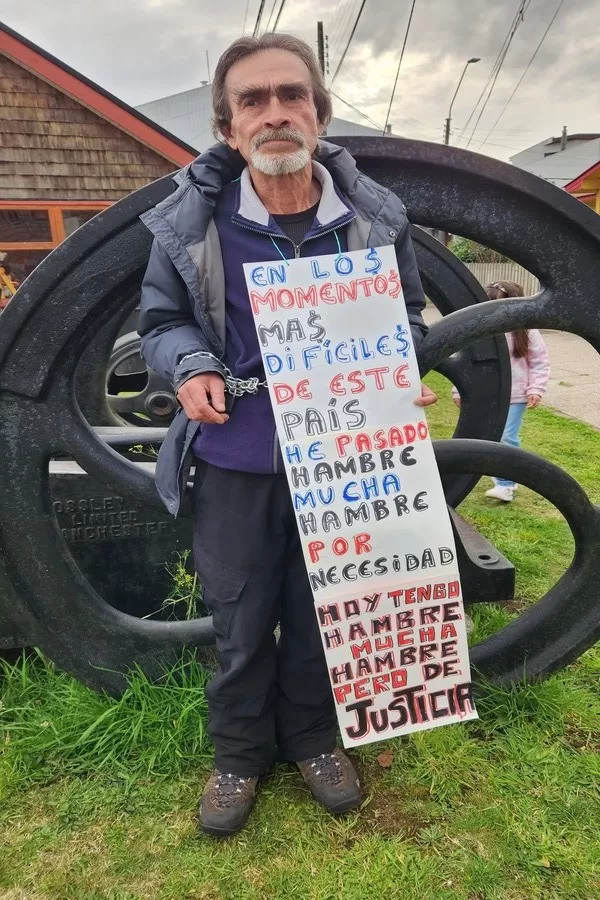 EN LO$
MOMENTO$
MA$
DIFÍCILE$
DE ESTE
PAÍS
HE PASADO
HAMBRE
MUCHA
HAMBRE
POR
NECESIDAD
HOY TENGO
HAMBRE
MUCHA
HAMBRE
PERO DE
JUSTICIA
LIMITED